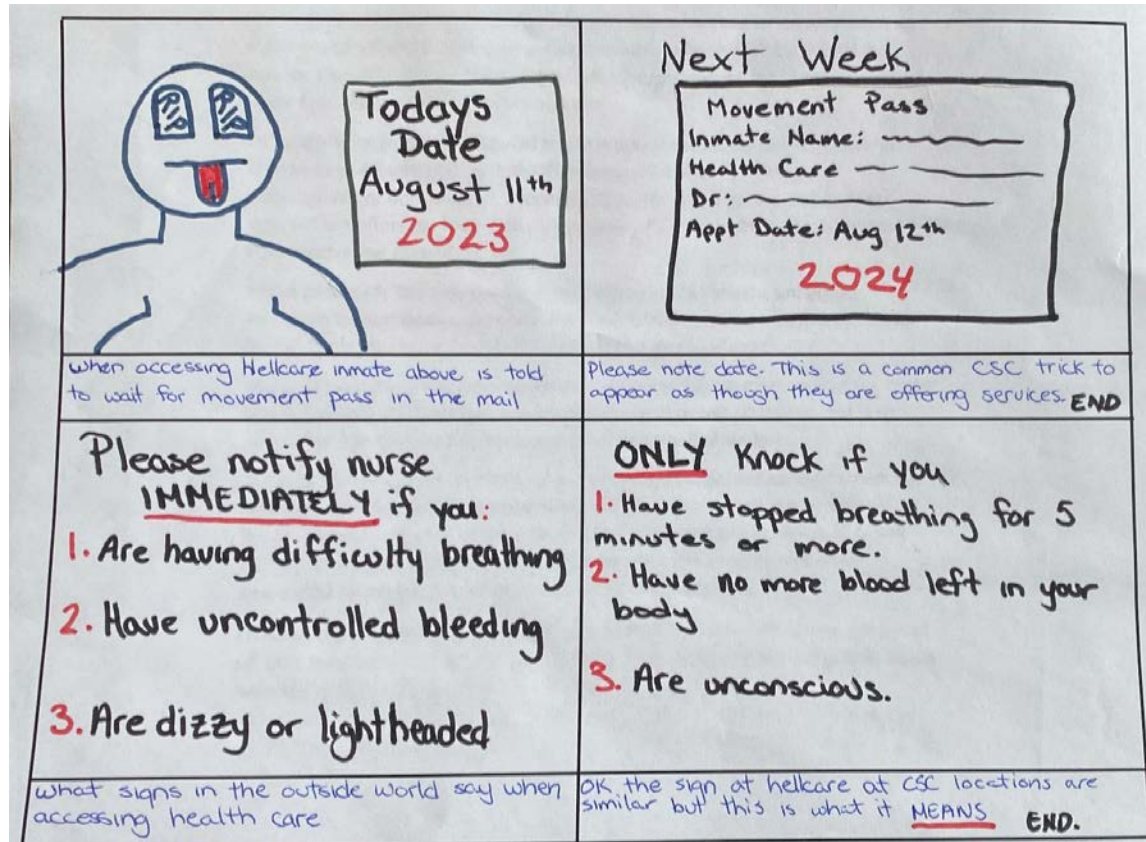 Todays
Date
August 11th
2023
Next Week
Movement Pass
Inmate Name:
Health Care
Dr:
Appt Date: Aug 12th
2024
when accessing Hellcare inmate above is told
to wait for movement pass in the mail
Please note date. This is a common CSC trick to
appear as though they are offering services. END
Please notify nurse
IMMEDIATELY if you:
1. Are having difficulty breathing
2. Have uncontrolled bleeding
3. Are dizzy or lightheaded
ONLY Knock if you
1. Have stopped breathing for 5
minutes or more.
2. Have no more blood left in your
body
3. Are unconscious.
what signs in the outside world say when
accessing health care
OK the sign at hellcare at CSC locations are
similar but this is what it MEANS END.